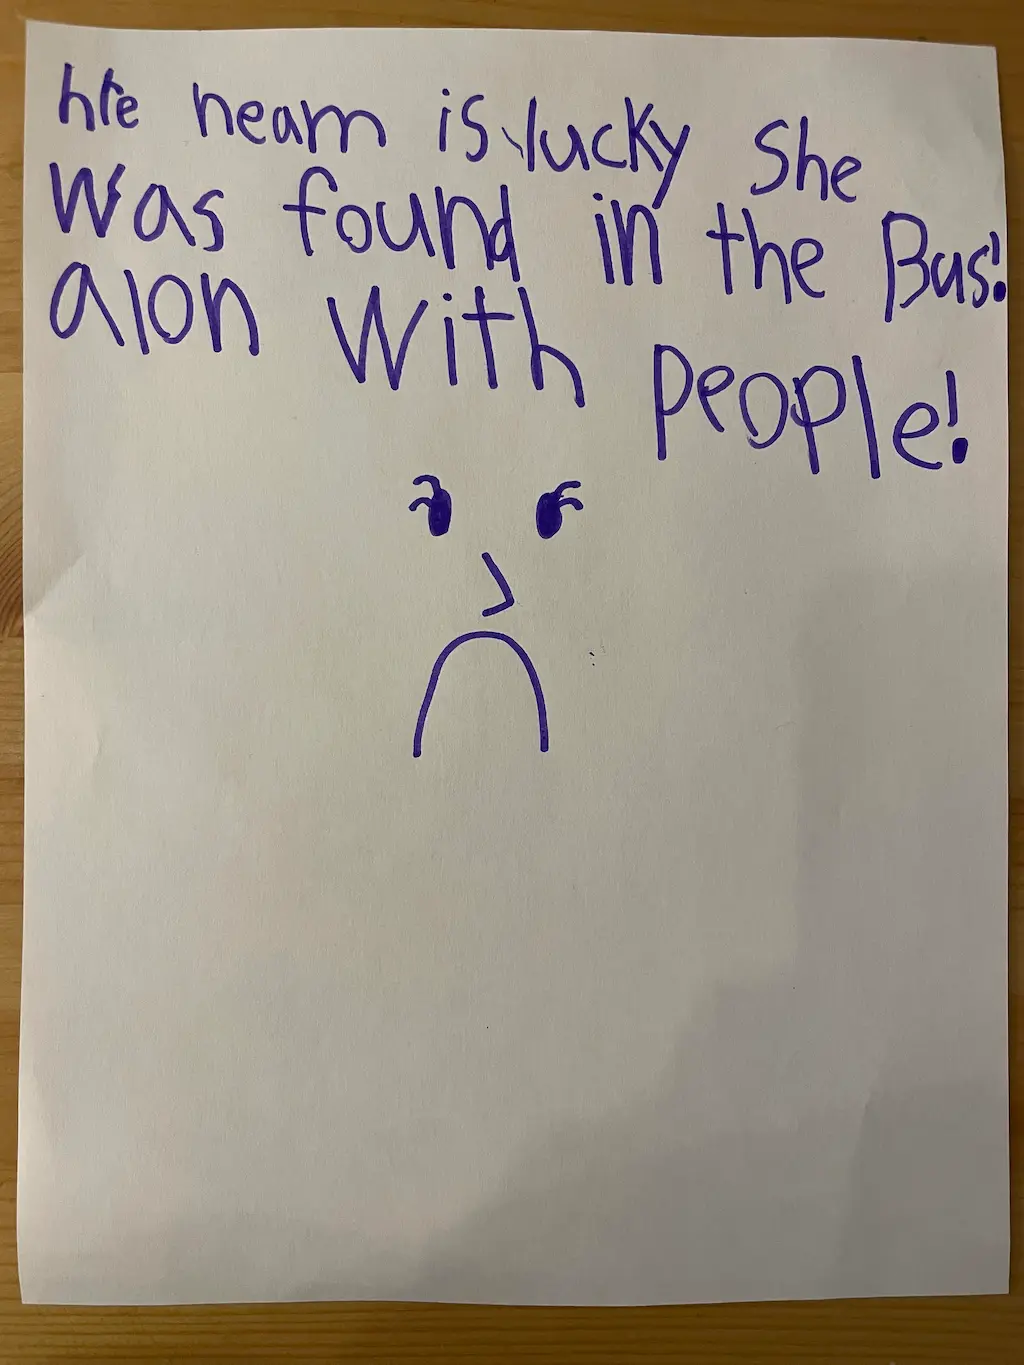 hre neam is lucky She
was found in the Bus!
alon with people!